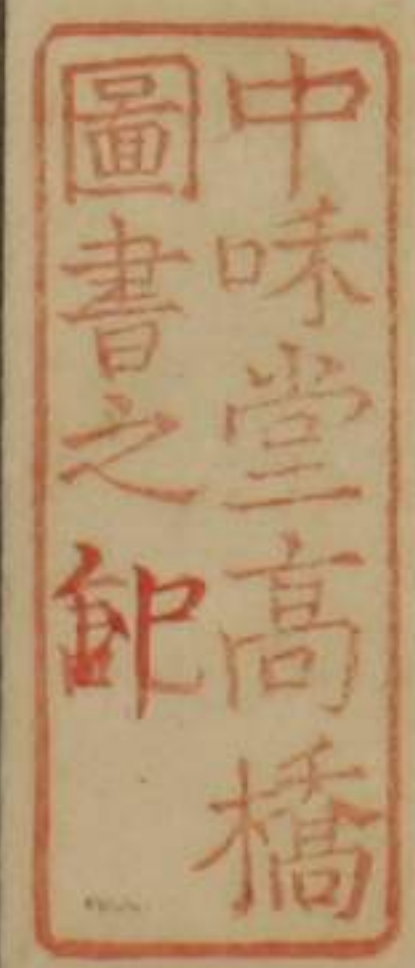 中味堂高橋
圖書之